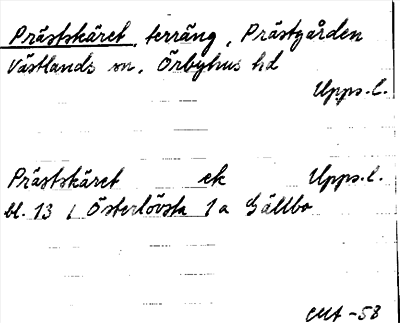 Prästskäret, terräng, Prästgården
Västlands sn, Örbyhus hd
Upps.l.
Prästskäret ek Upps.l.
bl. 13 / Österlövsta 1a Gällbo
-58